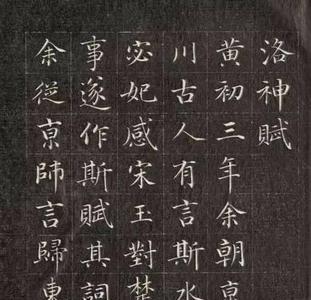 洛神賦
黃初三年余朝亰
川古人有言斯水
宓妃感宋玉對楚
事遂作斯賦其詞
余從亰師言歸東